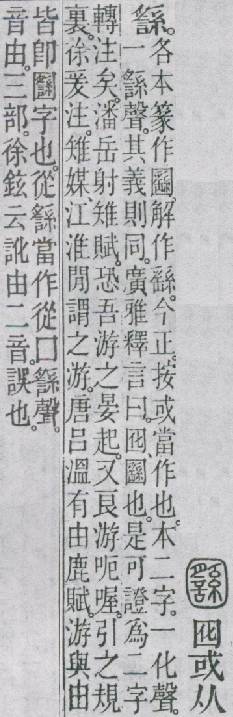 𡈙 囮或从
繇。各本篆作𡈙解作繇。今正。按或當作也。本二字。一化聲。
一繇聲。其義則同。廣雅釋言曰。囮、𡈙也。是可證爲二字
轉注矣。潘岳射雉賦。恐吾游之晏起。又良游呃喔。引之規
裏。徐爰注。雉媒、江淮閒謂之游。唐呂溫有由鹿賦。游與由
皆卽𡈙字也。從繇當作從囗繇聲。
音由。三部。徐鉉云訛由二音。誤也。